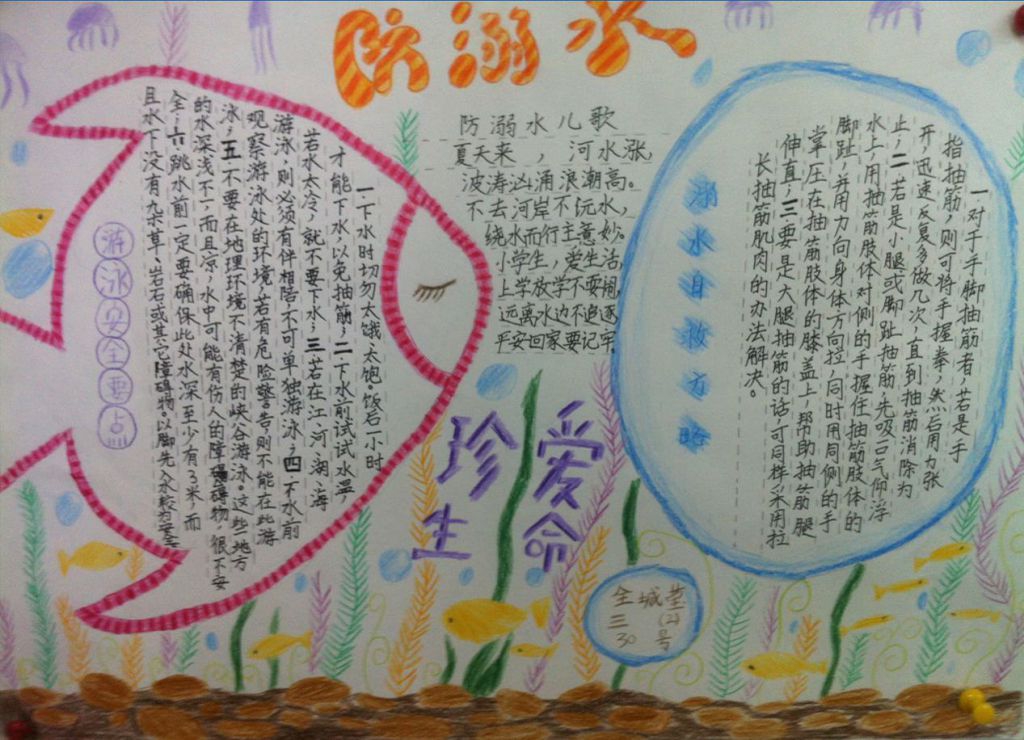 防溺水
游泳安全要点
一下水时切勿太饿、太饱。饭后一小时
才能下水,以免抽筋;二下水前试试水温
若水太冷,就不要下水;三若在江、河、湖、海
游泳,则必须有伴相陪不可单独游泳;四下水前
观察游泳处的环境若有危险警告,则不能在此游
泳;五不要在地理环境不清楚的峡谷游泳。这些地方
的水深浅不一,而且凉,水中可能有伤人的障碍物,很不安
全;六跳水前一定要确保此处水深至少有3米,而
且水下没有杂草、岩石或其它障碍物以脚先入水较为安全
防溺水儿歌
夏天来,河水涨,
波涛汹涌浪潮高。
不去河岸不玩水,
绕水而行主意妙。
小学生,爱生活,
上学放学不耍拐,
远离水边不追逐
平安回家要记牢
珍爱
生命
溺水自救方略
一对于手脚抽筋者,若是手
指抽筋,则可将手握拳,然后用力张
开,迅速反复多做几次,直到抽筋消除为
止;二若是小腿或脚趾抽筋,先吸一口气仰浮
水上,用抽筋肢体对侧的手握住抽筋肢体的
脚趾,并用力向身体方向拉,同时用同侧的手
掌压在抽筋肢体的膝盖上,帮助抽筋腿
伸直;三要是大腿抽筋的话,可同样采用拉
长抽筋肌肉的办法解决。
三(2)
30号